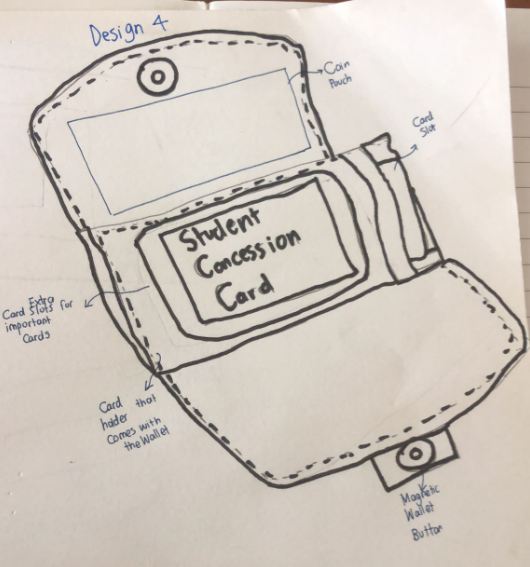 Design 4
Coin
Pouch
Card
Slot
Student
Concession
Card
Extra
Card slots for
important
Cards
Card
holder that
comes with
the Wallet
Magnetic
Wallet
Button